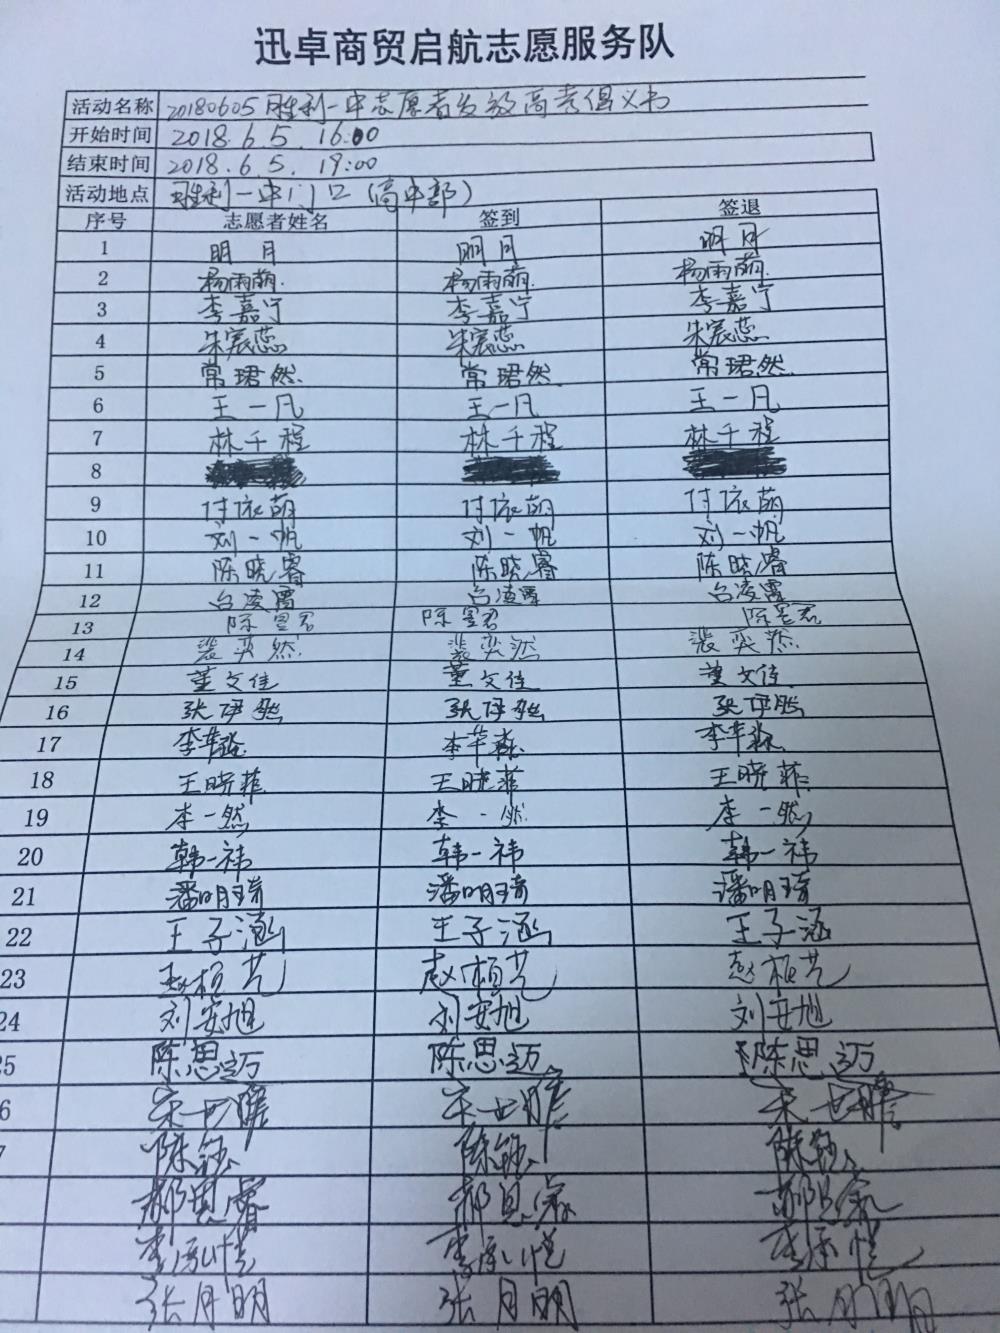 迅卓商贸启航志愿服务队
活动名称 20180605胜利一中志愿者发放高考倡议书
开始时间 2018.6.5. 16:00
结束时间 2018.6.5. 19:00
活动地点 胜利一中门口(高中部)
序号 志愿者姓名 签到 签退
1 明月 明月 明月
2 杨雨萌. 杨雨萌. 杨雨萌.
3 李嘉宁 李嘉宁 李嘉宁
4 朱宸蕊 朱宸蕊 朱宸蕊
5 常珺然. 常珺然. 常珺然.
6 王一凡 王一凡 王一凡
7 林千程 林千程 林千程
8
9 付依萌 付依萌 付依萌
10 刘一帆 刘一帆 刘一帆
11 陈晓睿 陈晓睿 陈晓睿
12 台凌霄 台凌霄 台凌霄
13 陈昱君 陈昱君 陈昱君
14 裴奕然 裴奕然 裴奕然
15 董文佳 董文佳 董文佳
16 张伊然 张伊然 张伊然
17 李 李 李
18 王晓菲 王晓菲 王晓菲
19 李一然 李一然 李一然
20 韩一祎 韩一祎 韩一祎
21 潘明琦 潘明琦 潘明琦
22 王子涵 王子涵 王子涵
23 赵桢艺 赵桢艺 赵桢艺
24 刘安旭 刘安旭 刘安旭
25 陈思迈 陈思迈 陈思迈
6 宋世 宋世 宋世
7 陈钰 陈钰 陈钰
郝思睿 郝思睿 郝思睿
李 李 李
张月明 张月明 张月明